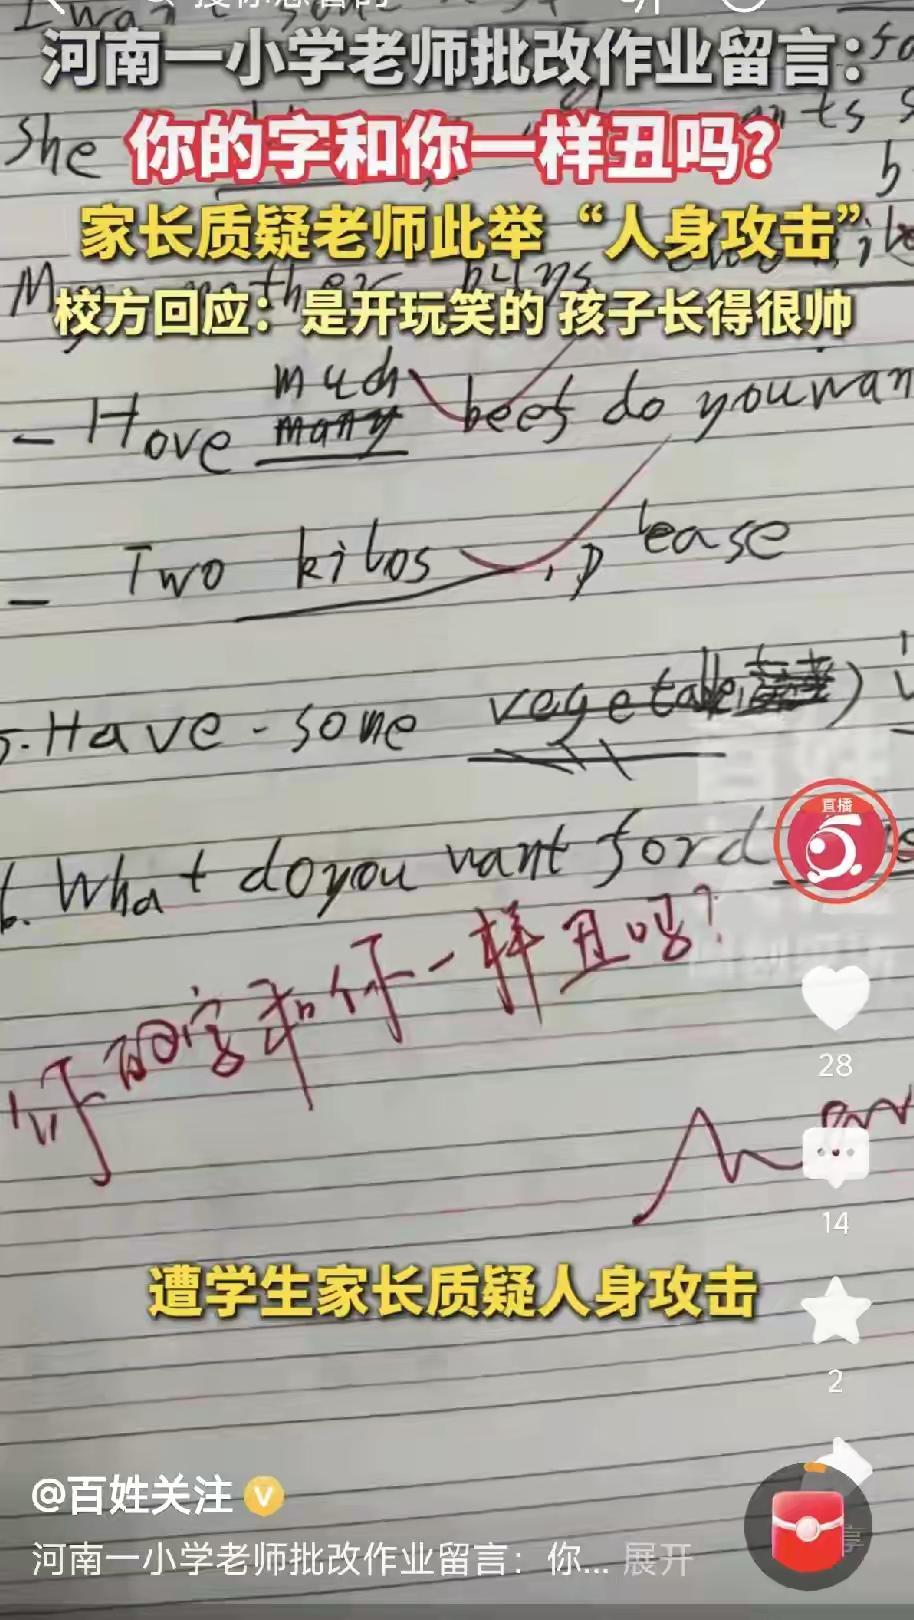 河南一小学老师批改作业留言：
She
你的字和你一样丑吗？
家长质疑老师此举“人身攻击”
校方回应：是开玩笑的 孩子长得很帅
much
- Hove many beef do you wan
- Two kilos , please
5. Have - some vegetable
6. What do you want for d
直播
你的字和你一样丑吗？
28
14
遭学生家长质疑人身攻击
2
@百姓关注
河南一小学老师批改作业留言：你... 展开